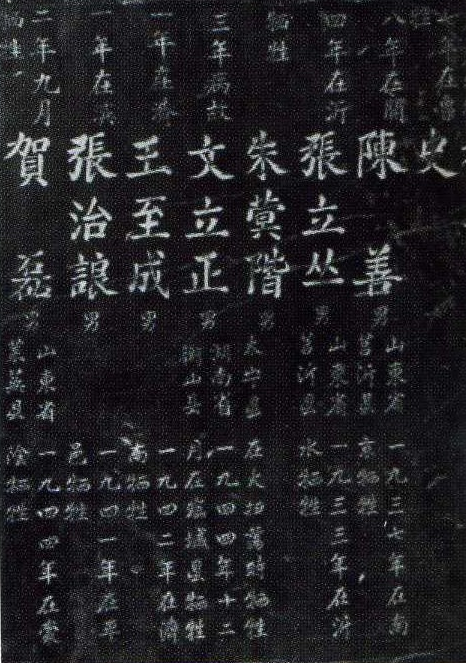 七年在魯
牺牲
八年在蘭
四年在沂
牺牲
三年病故
一年在濟
一年在
二年九月
史
陳善
男
山東省
莒沂县
一九三七年在南
京牺牲
張立丛
男
山東省
莒沂区
一九三三年在沂
水牺牲
朱黨階
男
在大扫荡時牺牲
文立正
男
湖南省
衡山县
一九四四年十二
月在臨城县牺牲
王至成
男
一九四二年在濟
南牺牲
張治誏
男
一九四一年在平
邑牺牲
賀磊
男
山東省
莱芜县
一九四四年在蒙
陰牺牲